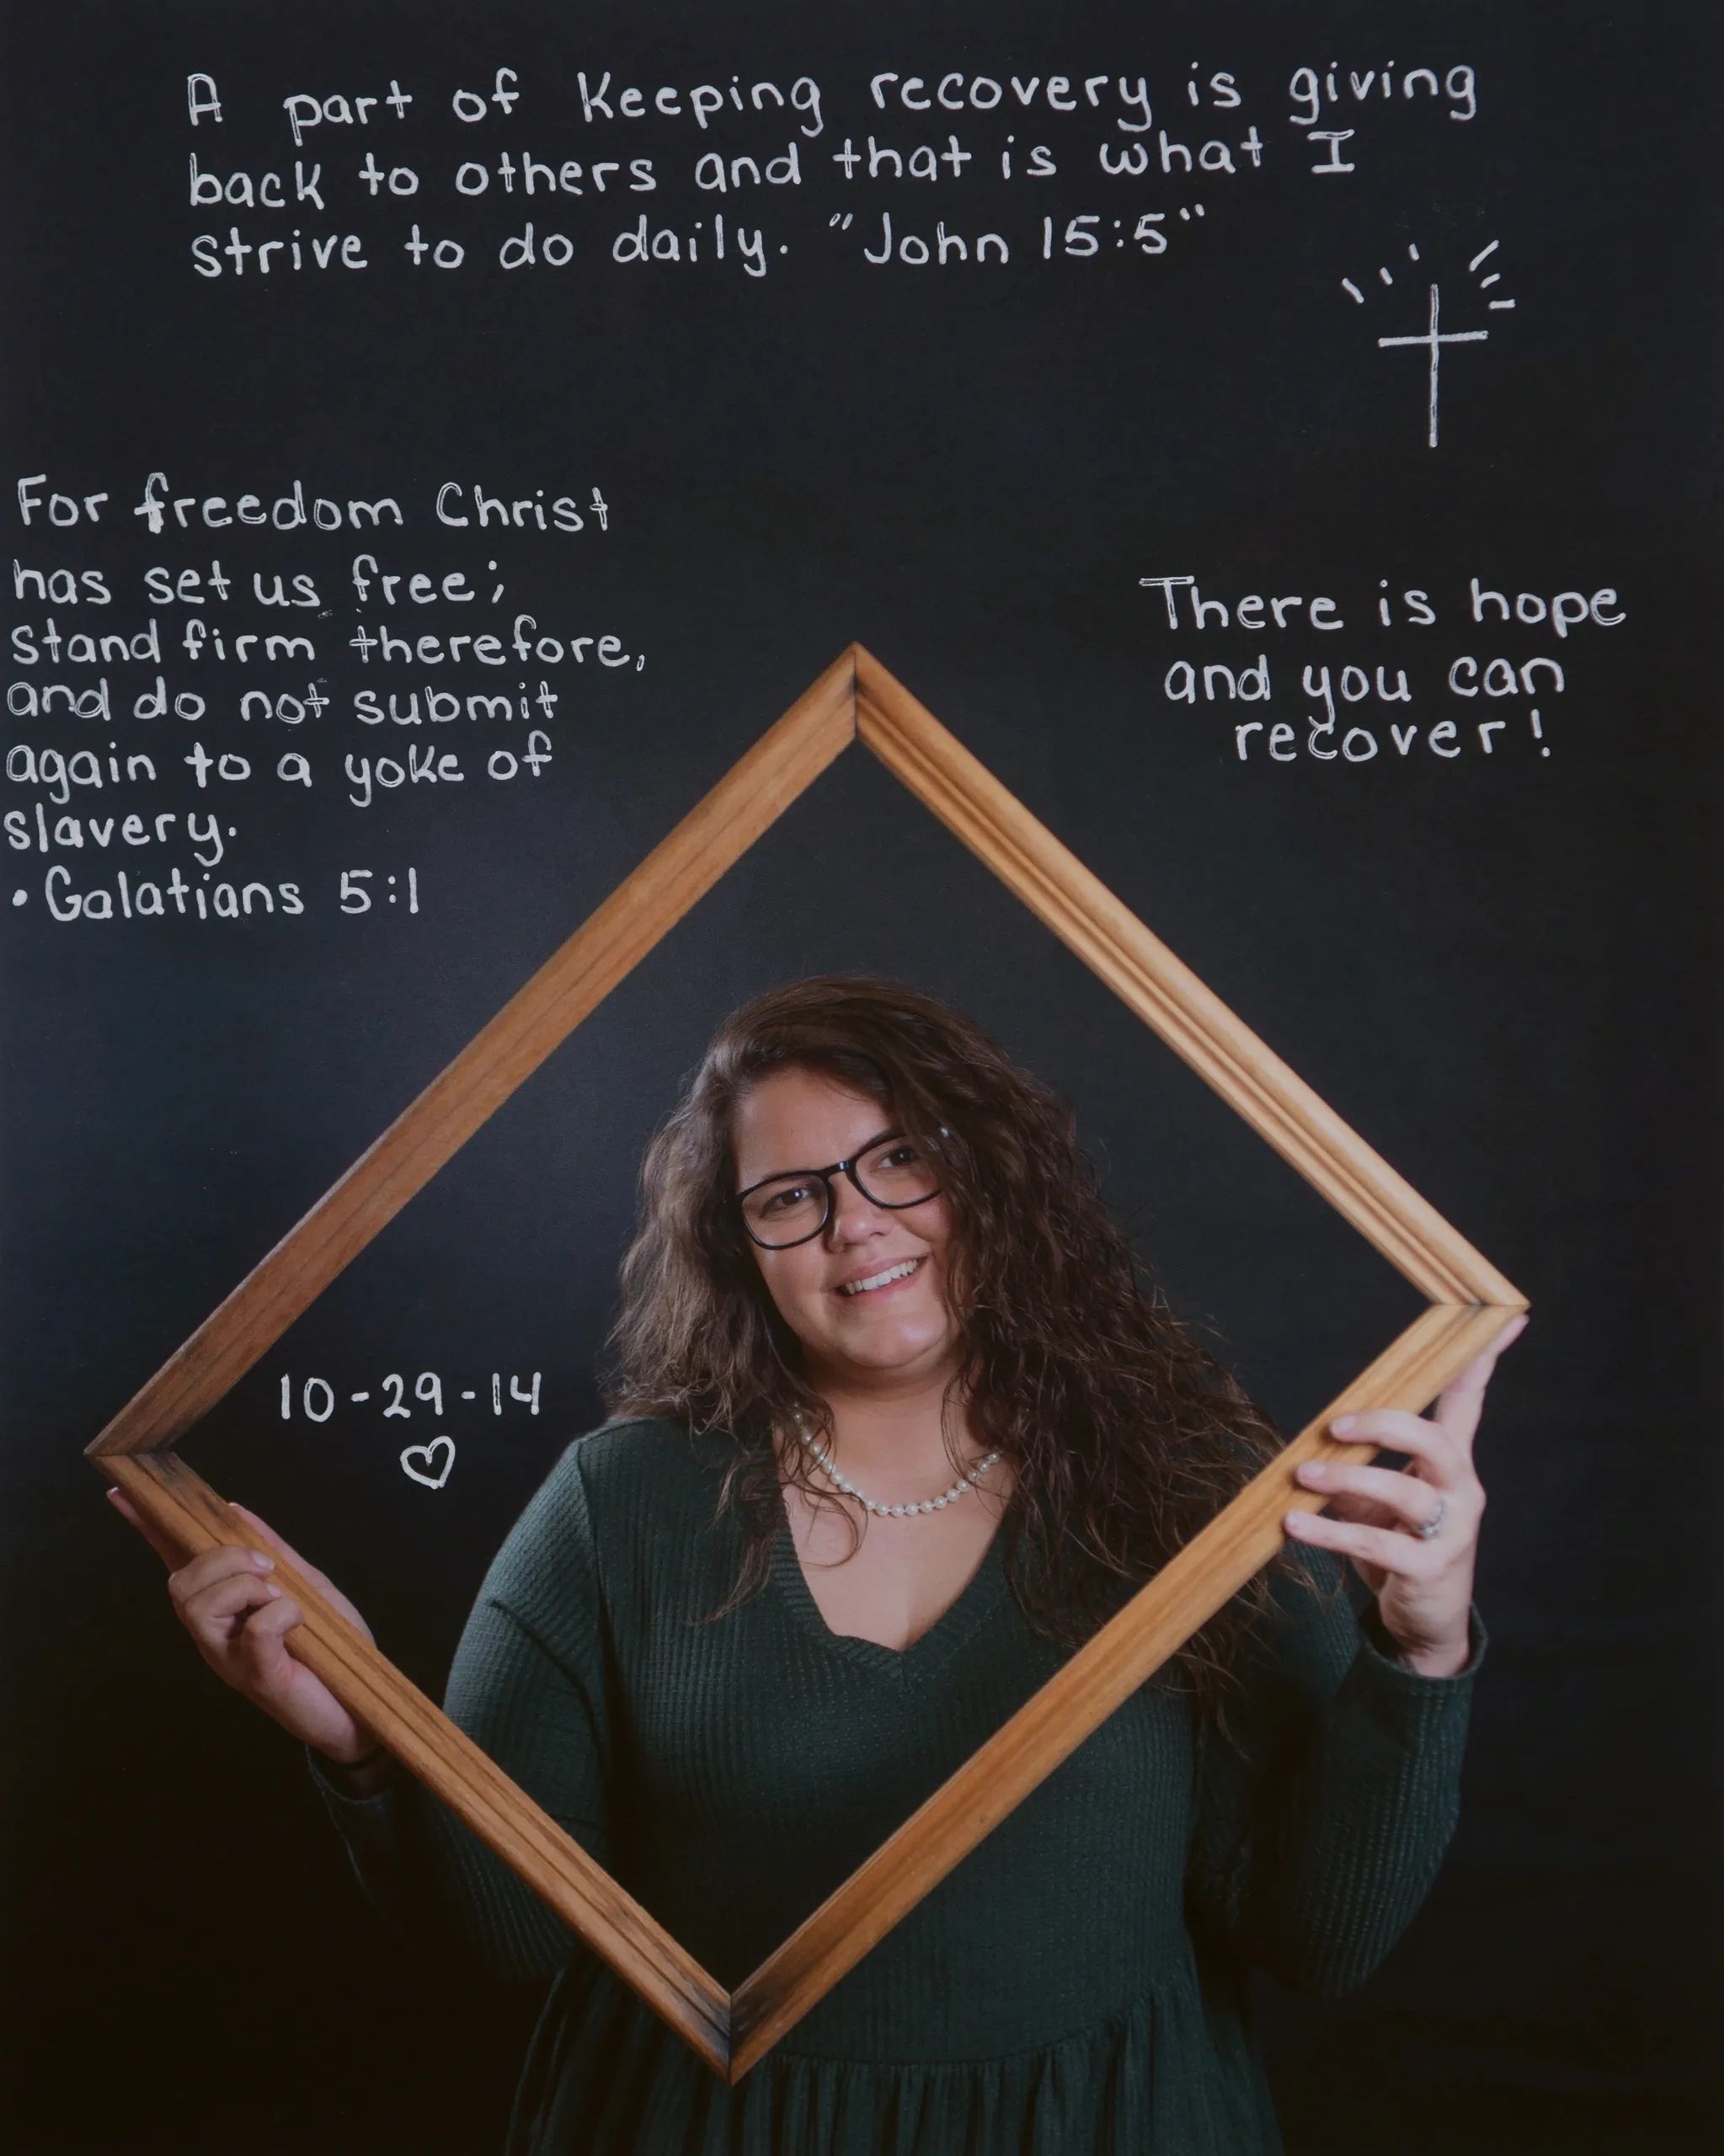 A part of Keeping recovery is giving
back to others and that is what I
strive to do daily. "John 15:5"
For freedom Christ
has set us free;
stand firm therefore,
and do not submit
again to a yoke of
slavery.
• Galatians 5:1
There is hope
and you can
recover!
10-29-14